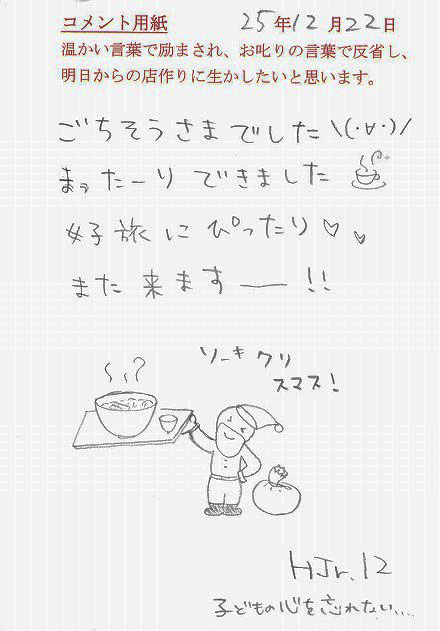 コメント用紙 25年12月22日
温かい言葉で励まされ、お叱りの言葉で反省し、
明日からの店作りに生かしたいと思います。
ごちそうさまでした \(・∀・)/
まったーりできました
好旅にぴったり♡♡
また来ますー!!
ソーキクリ
スマス!
HJr.12
子どもの心を忘れない....